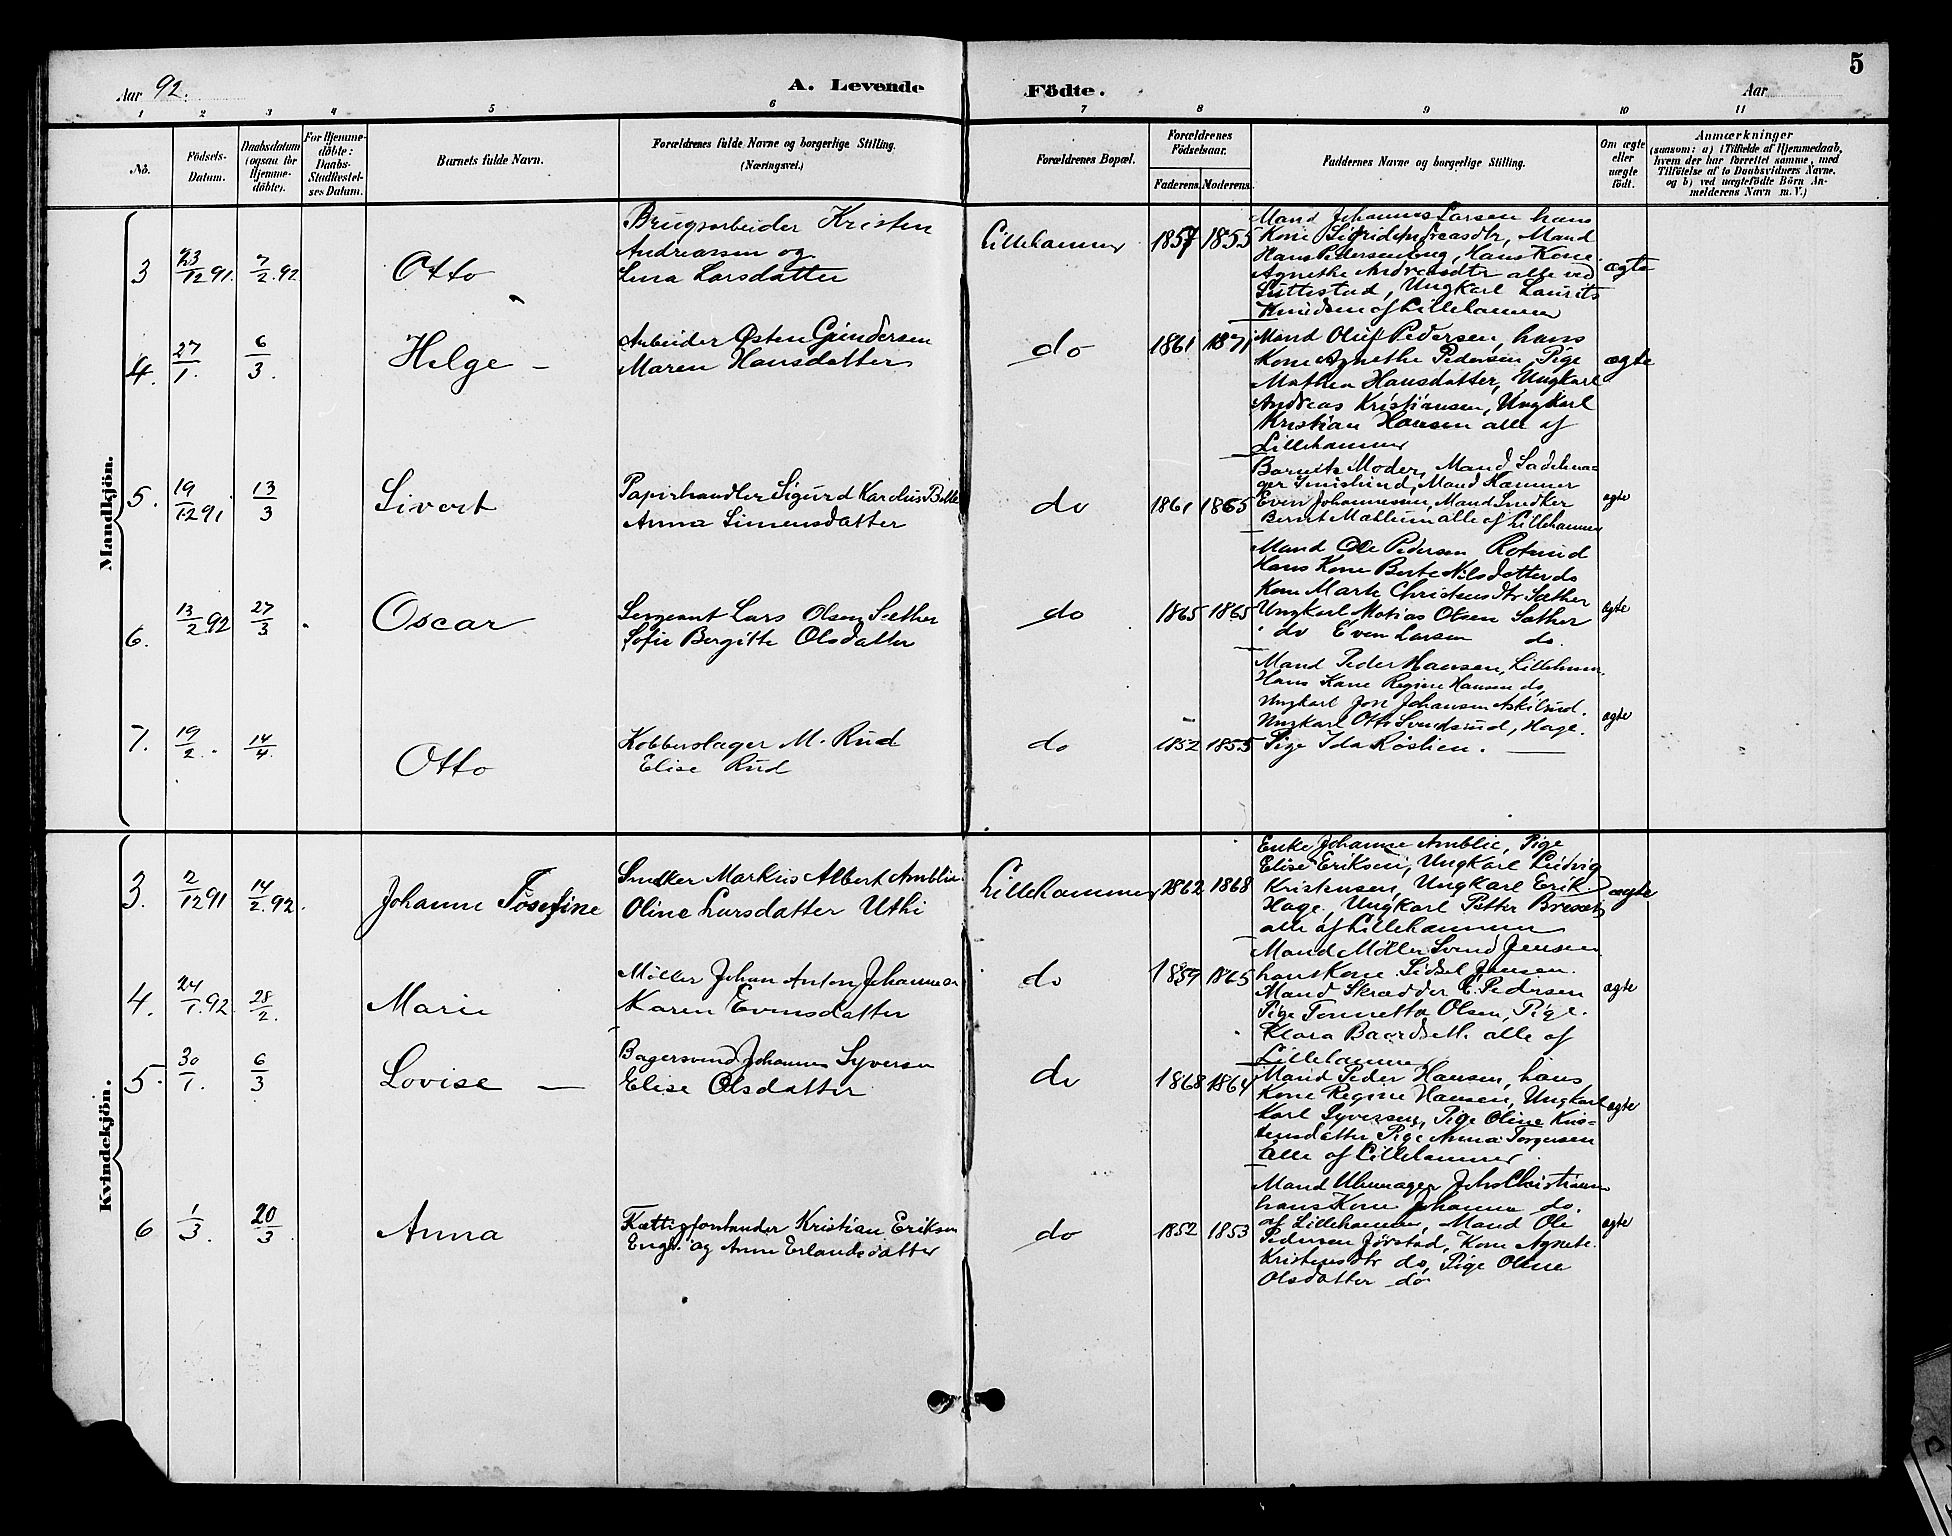 Aar 92.
A. Levende Födte.
Aar
5
1 2 3 4 5 6 7 8 9 10 11
No.
Födsels-
Datum.
Daabsdatum
(ogsaa for
Hjemme-
döbte).
For Hjemme-
döbte:
Daabs-
Stadfæstel-
ses Datum.
Barnets fulde Navn.
Forældrenes fulde Navne og borgerlige Stilling.
(Næringsvei.)
Forældrenes Bopæl.
Forældrenes
Födselsaar.
Faderens. Moderens.
Faddernes Navne og borgerlige Stilling.
Om ægte
eller
uægte
födt.
Anmærkninger
(saasom: a) i Tilfælde af Hjemmedaab,
hvem der har forrettet samme, med
Tilföielse af to Daabsvidners Navne,
og b) ved uægtefödte Börn An-
melderens Navn m. V.)
Mandkjön.
3 23/12 91. 7/2. 92 Otto
Brugsarbeider Kristen
Andreassen og
Lina Larsdatter
Lillehammer 1857 1855
Mand Johannes Larsen hans
Kone Sigrid Andreasdtr, Mand
Hans Pedersen, Hans Kone
Agnethe Andreasdtr alle ved
Suttestad, Ungkarl Laurits
Knudsen af Lillehammer
ægte
4. 27/1. 6/3. Helge –
Arbeider Østen Gundersen
Maren Hansdatter
do 1861 1871
Mand Oluf Pedersen, hans
Kone Agnethe Pedersen, Pige
Mathea Hansdatter, Ungkarl
Andreas Kristiansen, Ungkarl
Kristian Hansen alle af
Lillehammer
ægte
5. 19/12 91 13/3 Sivert
Papirhandler Sigurd Karelius
Anna Simensdatter
do 1861 1865
Barnets Moder, Mand Sadelma-
ger Mand
Even Johannesen, Mand Snedker
Bernt alle af Lillehammer
ægte
6. 13/2 92 27/3 Oscar
Sergeant Lars Olsen Sæther
Sofie Bergitte Olsdatter
do 1865 1865
Mand Ole Pedersen
Hans Kone Berte Nilsdatter do
Kone Marte Christensdtr Sæther
Ungkarl Matias Olsen Sæther
do Even Larsen do.
ægte
7. 19/2. 14/4. Otto
Kobberslager M. Rud
Elise Rud
do 1852 1855
Mand Peder Hansen, Lillehammer
Hans Kone Regine Hansen do,
Ungkarl Johansen
Ungkarl Otto Hage.
Pige Ida Røstien.
ægte
Kvindekjön.
3. 2/12 91 14/2. 92. Johanne Josefine
Snedker Markus Albert Amblie
Oline Larsdatter Uthi
Lillehammer 1862 1868
Enke Johanne Amblie, Pige
Elise Eriksen, Ungkarl Ludvig
Kristensen, Ungkarl Erik
Hage, Ungkarl Petter
alle af Lillehammer
ægte
4. 24/1. 92. 28/2. Marie
Møller Johan Anton Johannesen
Karen Evensdatter
do 1859 1865
Mand Møller Svend Jensen
hans Kone Sidsel Jensen.
Mand Skrædder E. Pedersen
Pige Tonnetta Olsen, Pige.
Klara alle af
Lillehammer
ægte
5. 30/1. 6/3 Lovise –
Bagersvend Johannes Syversen
Elise Olsdatter
do 1868 1864
Mand Peder Hansen, hans
Kone Regine Hansen, Ungkarl
Karl Syversen, Pige Oline Kris-
tensdatter Pige Anna Torgersen
alle af Lillehammer
ægte
6 1/3. 20/3. Anna
Fattigforstander Kristian Eriksen
Enge og Anne Erlandsdatter
do 1852 1853
Mand Uhrmager Johs Christiansen
hans Kone Johanne do.
af Lillehammer, Mand Ole
Pedersen Jørstad, Kone Agnete
Kristensdtr do, Pige Oline
Olsdatter do
ægte